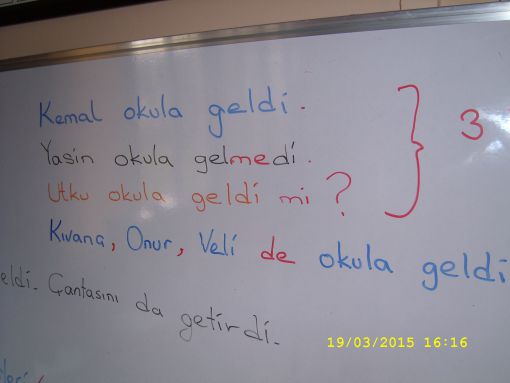 Kemal okula geldi.
3
Yasin okula gelmedi.
Utku okula geldi mi ?
Kıvanç, Onur, Veli de okula geldi
eldi. Çantasını da getirdi.
19/03/2015 16:16